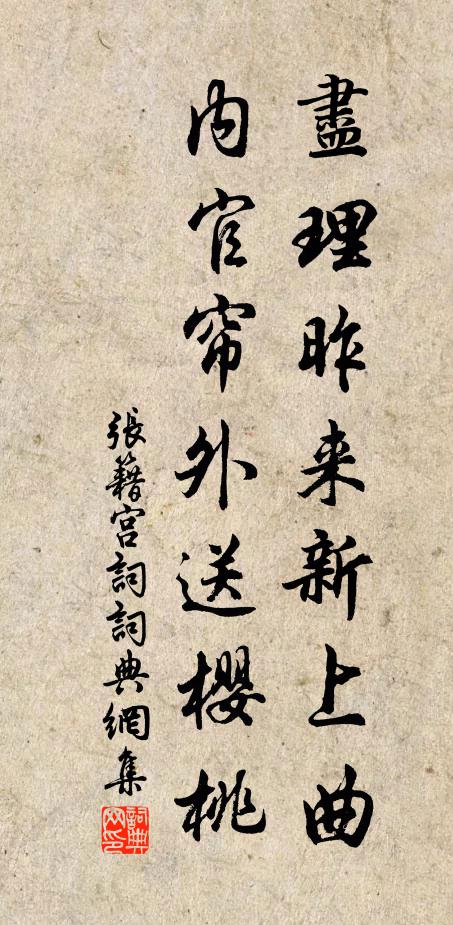 盡理昨来新上曲
内官帘外送櫻桃
張籍宫詞詞典網集
詞典网印